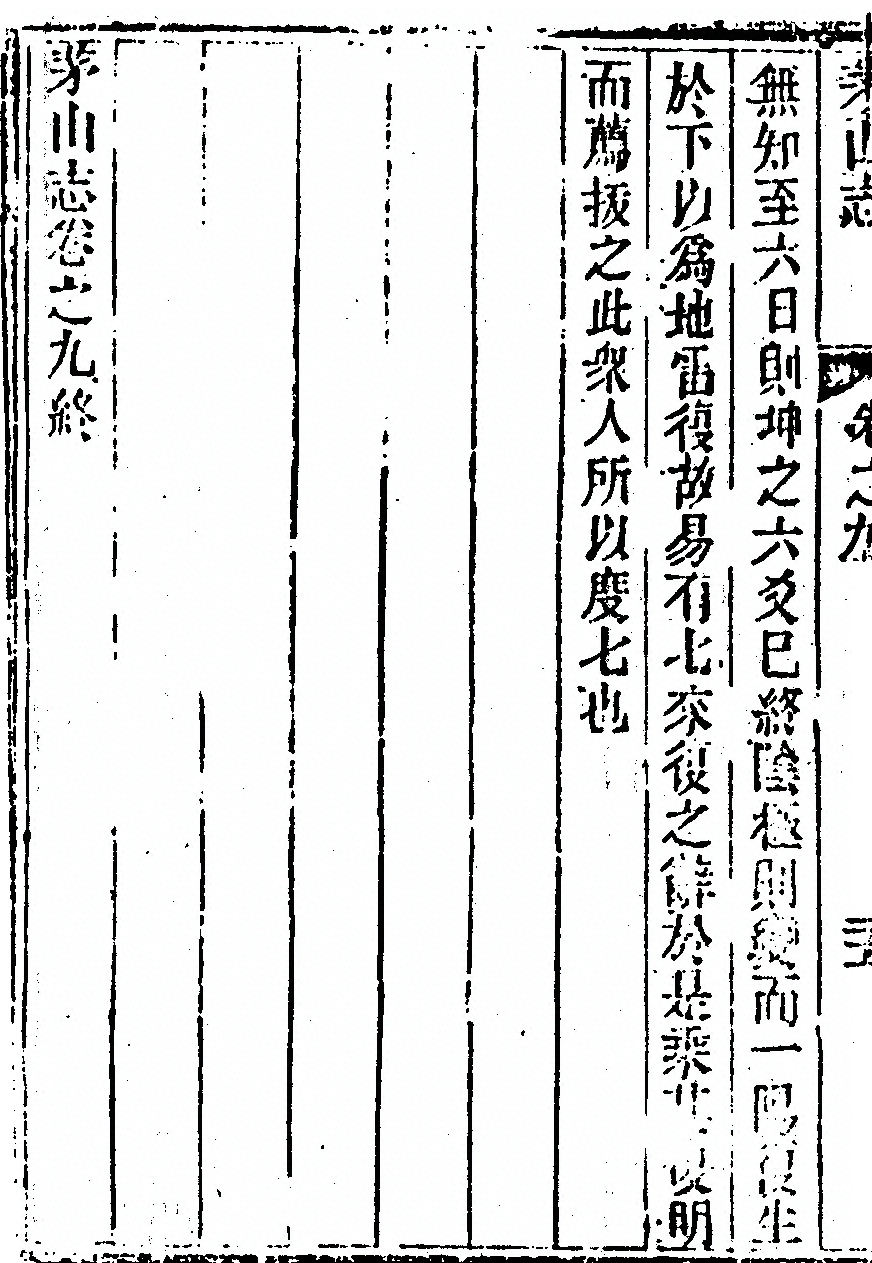 茅山志 卷之九
無知至六日則坤之六爻巳終陰極則變而一陽復生
於下以爲地雷復故易有七來復之辭於是乘其復明
而薦拔之此衆人所以度七也
茅山志卷之九終